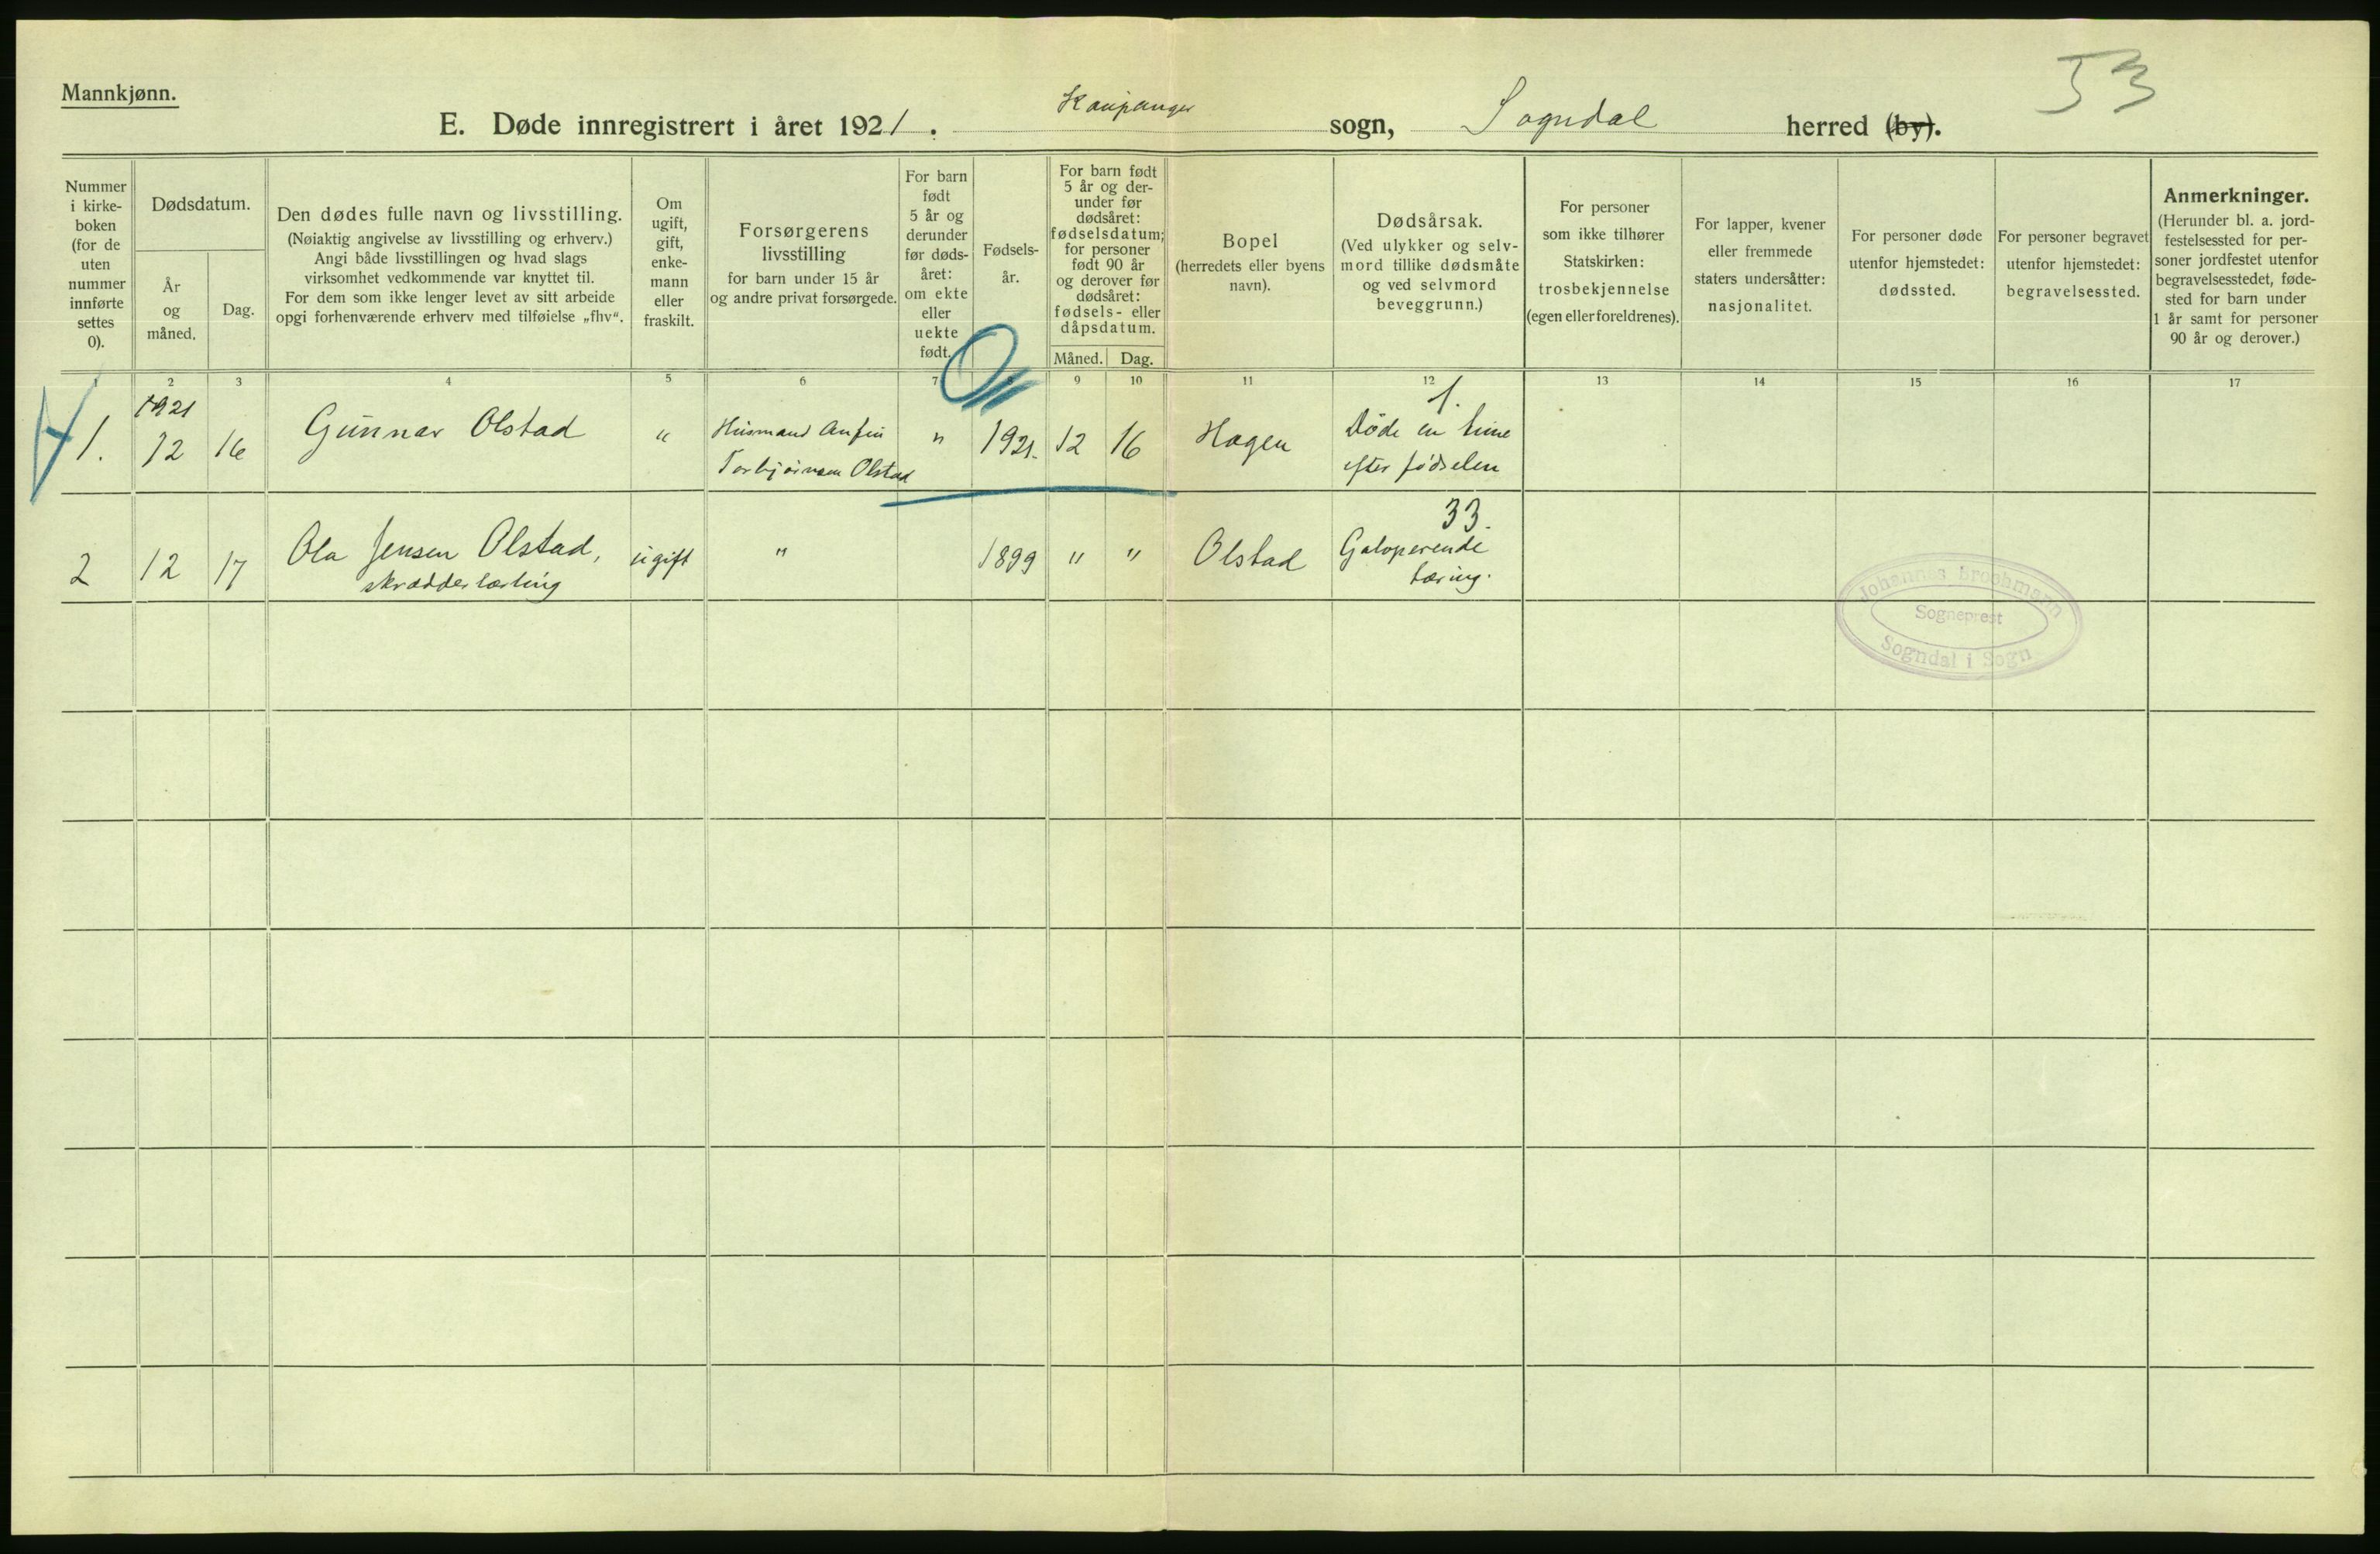 53
Mannkjønn.
E. Døde innregistrert i året 1921. Kaupanger sogn, Sogndal herred (by).
Nummer
i kirke-
boken
(for de
uten
nummer
innførte
settes
0).
Dødsdatum.
År
og
måned.
Dag.
Den dødes fulle navn og livsstilling.
(Nøiaktig angivelse av livsstilling og erhverv.)
Angi både livsstillingen og hvad slags
virksomhet vedkommende var knyttet til.
For dem som ikke lenger levet av sitt arbeide
opgi forhenværende erhverv med tilføielse „fhv“.
Om
ugift,
gift,
enke-
mann
eller
fraskilt.
Forsørgerens
livsstilling
for barn under 15 år
og andre privat forsørgede.
For barn
født
5 år og
derunder
før døds-
året:
om ekte
eller
uekte
født.
Fødsels-
år.
For barn født
5 år og der-
under før
dødsåret:
fødselsdatum;
for personer
født 90 år
og derover før
dødsåret:
fødsels- eller
dåpsdatum.
Måned.
Dag.
Bopel
(herredets eller byens
navn).
Dødsårsak.
(Ved ulykker og selv-
mord tillike dødsmåte
og ved selvmord
beveggrunn.)
For personer
som ikke tilhører
Statskirken:
trosbekjennelse
(egen eller foreldrenes).
For lapper, kvener
eller fremmede
staters undersåtter:
nasjonalitet.
For personer døde
utenfor hjemstedet:
dødssted.
For personer begravet
utenfor hjemstedet:
begravelsessted.
Anmerkninger.
(Herunder bl. a. jord-
festelsessted for per-
soner jordfestet utenfor
begravelsesstedet, føde-
sted for barn under
1 år samt for personer
90 år og derover.)
1 2 3 4 5 6 7 8 9 10 11 12 13 14 15 16 17
1921 1.
1. 12 16 Gunnar Olstad " Husmand Anfin " 1921. 12 16 Hagen Døde en time
Torbjørnsen Olstad efter fødselen
33.
2 12 17 Ola Jensen Olstad, ugift " 1899 " " Olstad Galoperende
skrædderlærling tæring.
Johannes Brochmann
Sogneprest
Sogndal i Sogn